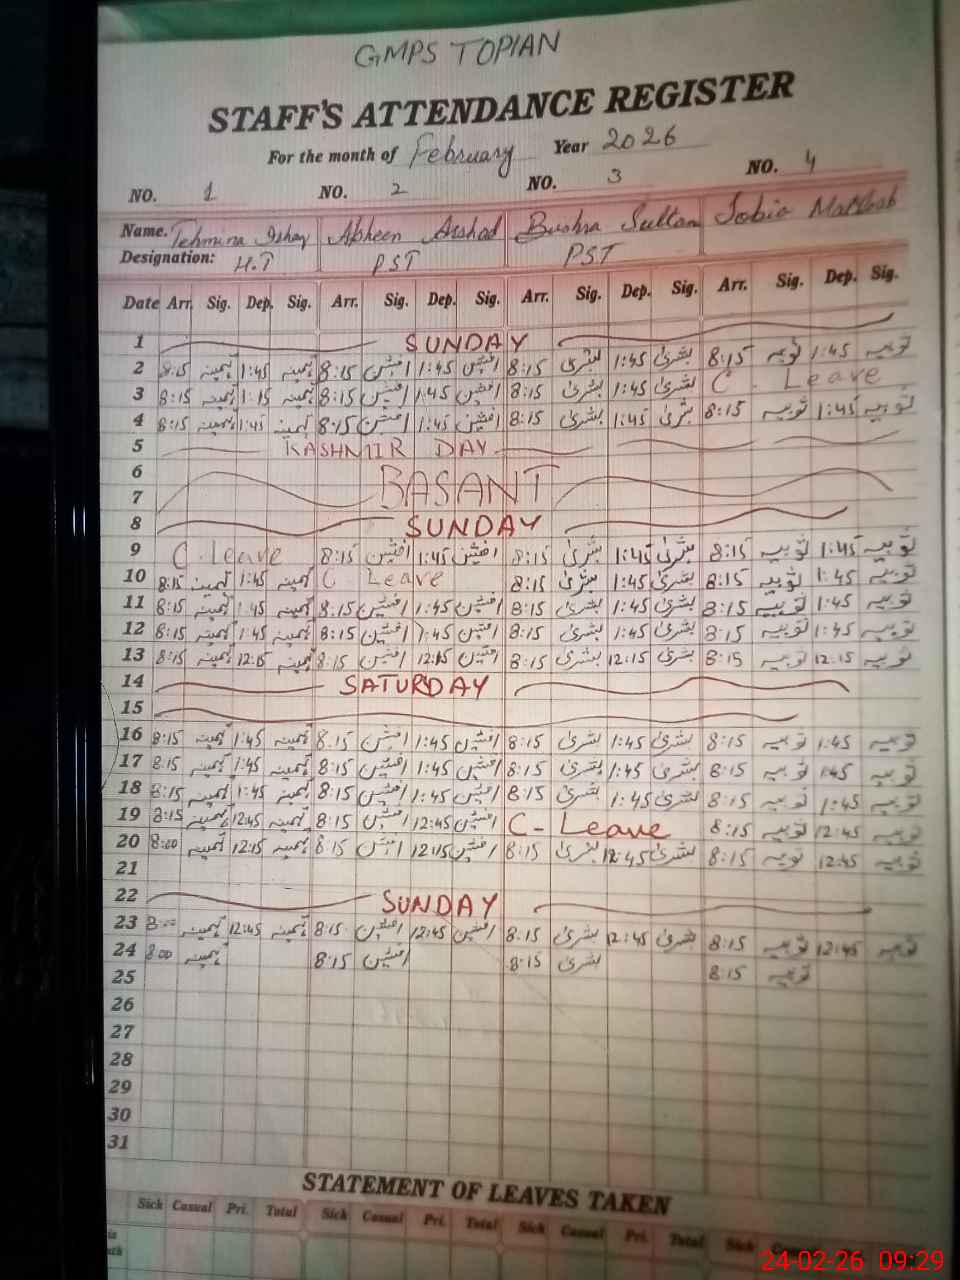 GMPS TOPIAN
STAFF'S ATTENDANCE REGISTER
For the month of February Year 2026
NO. 1 NO. 2 NO. 3 NO. 4
Name. Tehmina Ishaq Afsheen Arshad Bushra Sultan Sobia
Designation: H.T PST PST
Date Arr. Sig. Dep. Sig. Arr. Sig. Dep. Sig. Arr. Sig. Dep. Sig. Arr. Sig. Dep. Sig.
1 SUNDAY
2 8:15 تہمینہ 1:45 تہمینہ 8:15 افشین 1:45 افشین 8:15 بشریٰ 1:45 بشریٰ 8:15 ثوبیہ 1:45 ثوبیہ
3 8:15 تہمینہ 1:15 تہمینہ 8:15 افشین 1:45 افشین 8:15 بشریٰ 1:45 بشریٰ C. Leave
4 8:15 تہمینہ 1:45 تہمینہ 8:15 افشین 1:45 افشین 8:15 بشریٰ 1:45 بشریٰ 8:15 ثوبیہ 1:45 ثوبیہ
5 KASHMIR DAY
6
7 BASANT
8 SUNDAY
9 C. Leave 8:15 افشین 1:45 افشین 8:15 بشریٰ 1:45 بشریٰ 8:15 ثوبیہ 1:45 ثوبیہ
10 8:15 تہمینہ 1:45 تہمینہ C Leave 8:15 بشریٰ 1:45 بشریٰ 8:15 ثوبیہ 1:45 ثوبیہ
11 8:15 تہمینہ 1:45 تہمینہ 8:15 افشین 1:45 افشین 8:15 بشریٰ 1:45 بشریٰ 8:15 ثوبیہ 1:45 ثوبیہ
12 8:15 تہمینہ 1:45 تہمینہ 8:15 افشین 1:45 افشین 8:15 بشریٰ 1:45 بشریٰ 8:15 ثوبیہ 1:45 ثوبیہ
13 8:15 تہمینہ 12:15 تہمینہ 8:15 افشین 12:15 افشین 8:15 بشریٰ 12:15 بشریٰ 8:15 ثوبیہ 12:15 ثوبیہ
14 SATURDAY
15
16 8:15 تہمینہ 1:45 تہمینہ 8:15 افشین 1:45 افشین 8:15 بشریٰ 1:45 بشریٰ 8:15 ثوبیہ 1:45 ثوبیہ
17 8:15 تہمینہ 1:45 تہمینہ 8:15 افشین 1:45 افشین 8:15 بشریٰ 1:45 بشریٰ 8:15 ثوبیہ 1:45 ثوبیہ
18 8:15 تہمینہ 1:45 تہمینہ 8:15 افشین 1:45 افشین 8:15 بشریٰ 1:45 بشریٰ 8:15 ثوبیہ 1:45 ثوبیہ
19 8:15 تہمینہ 12:45 تہمینہ 8:15 افشین 12:45 افشین C- Leave 8:15 ثوبیہ 12:45 ثوبیہ
20 8:00 تہمینہ 12:15 تہمینہ 8:15 افشین 12:15 افشین 8:15 بشریٰ 12:45 بشریٰ 8:15 ثوبیہ 12:45 ثوبیہ
21
22 SUNDAY
23 8:00 تہمینہ 12:45 تہمینہ 8:15 افشین 12:45 افشین 8:15 بشریٰ 12:45 بشریٰ 8:15 ثوبیہ 12:45 ثوبیہ
24 8:00 تہمینہ 8:15 افشین 8:15 بشریٰ 8:15 ثوبیہ
25
26
27
28
29
30
31
STATEMENT OF LEAVES TAKEN
Sick Casual Pri. Total Sick Casual Pri. Total Sick Casual Pri. Total Sick
24-02-26 09:29